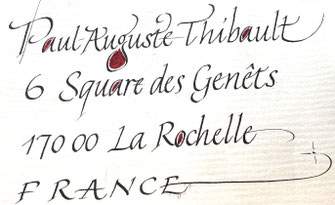 Paul Auguste Thibault
6 Square des Genêts
17000 La Rochelle
FRANCE